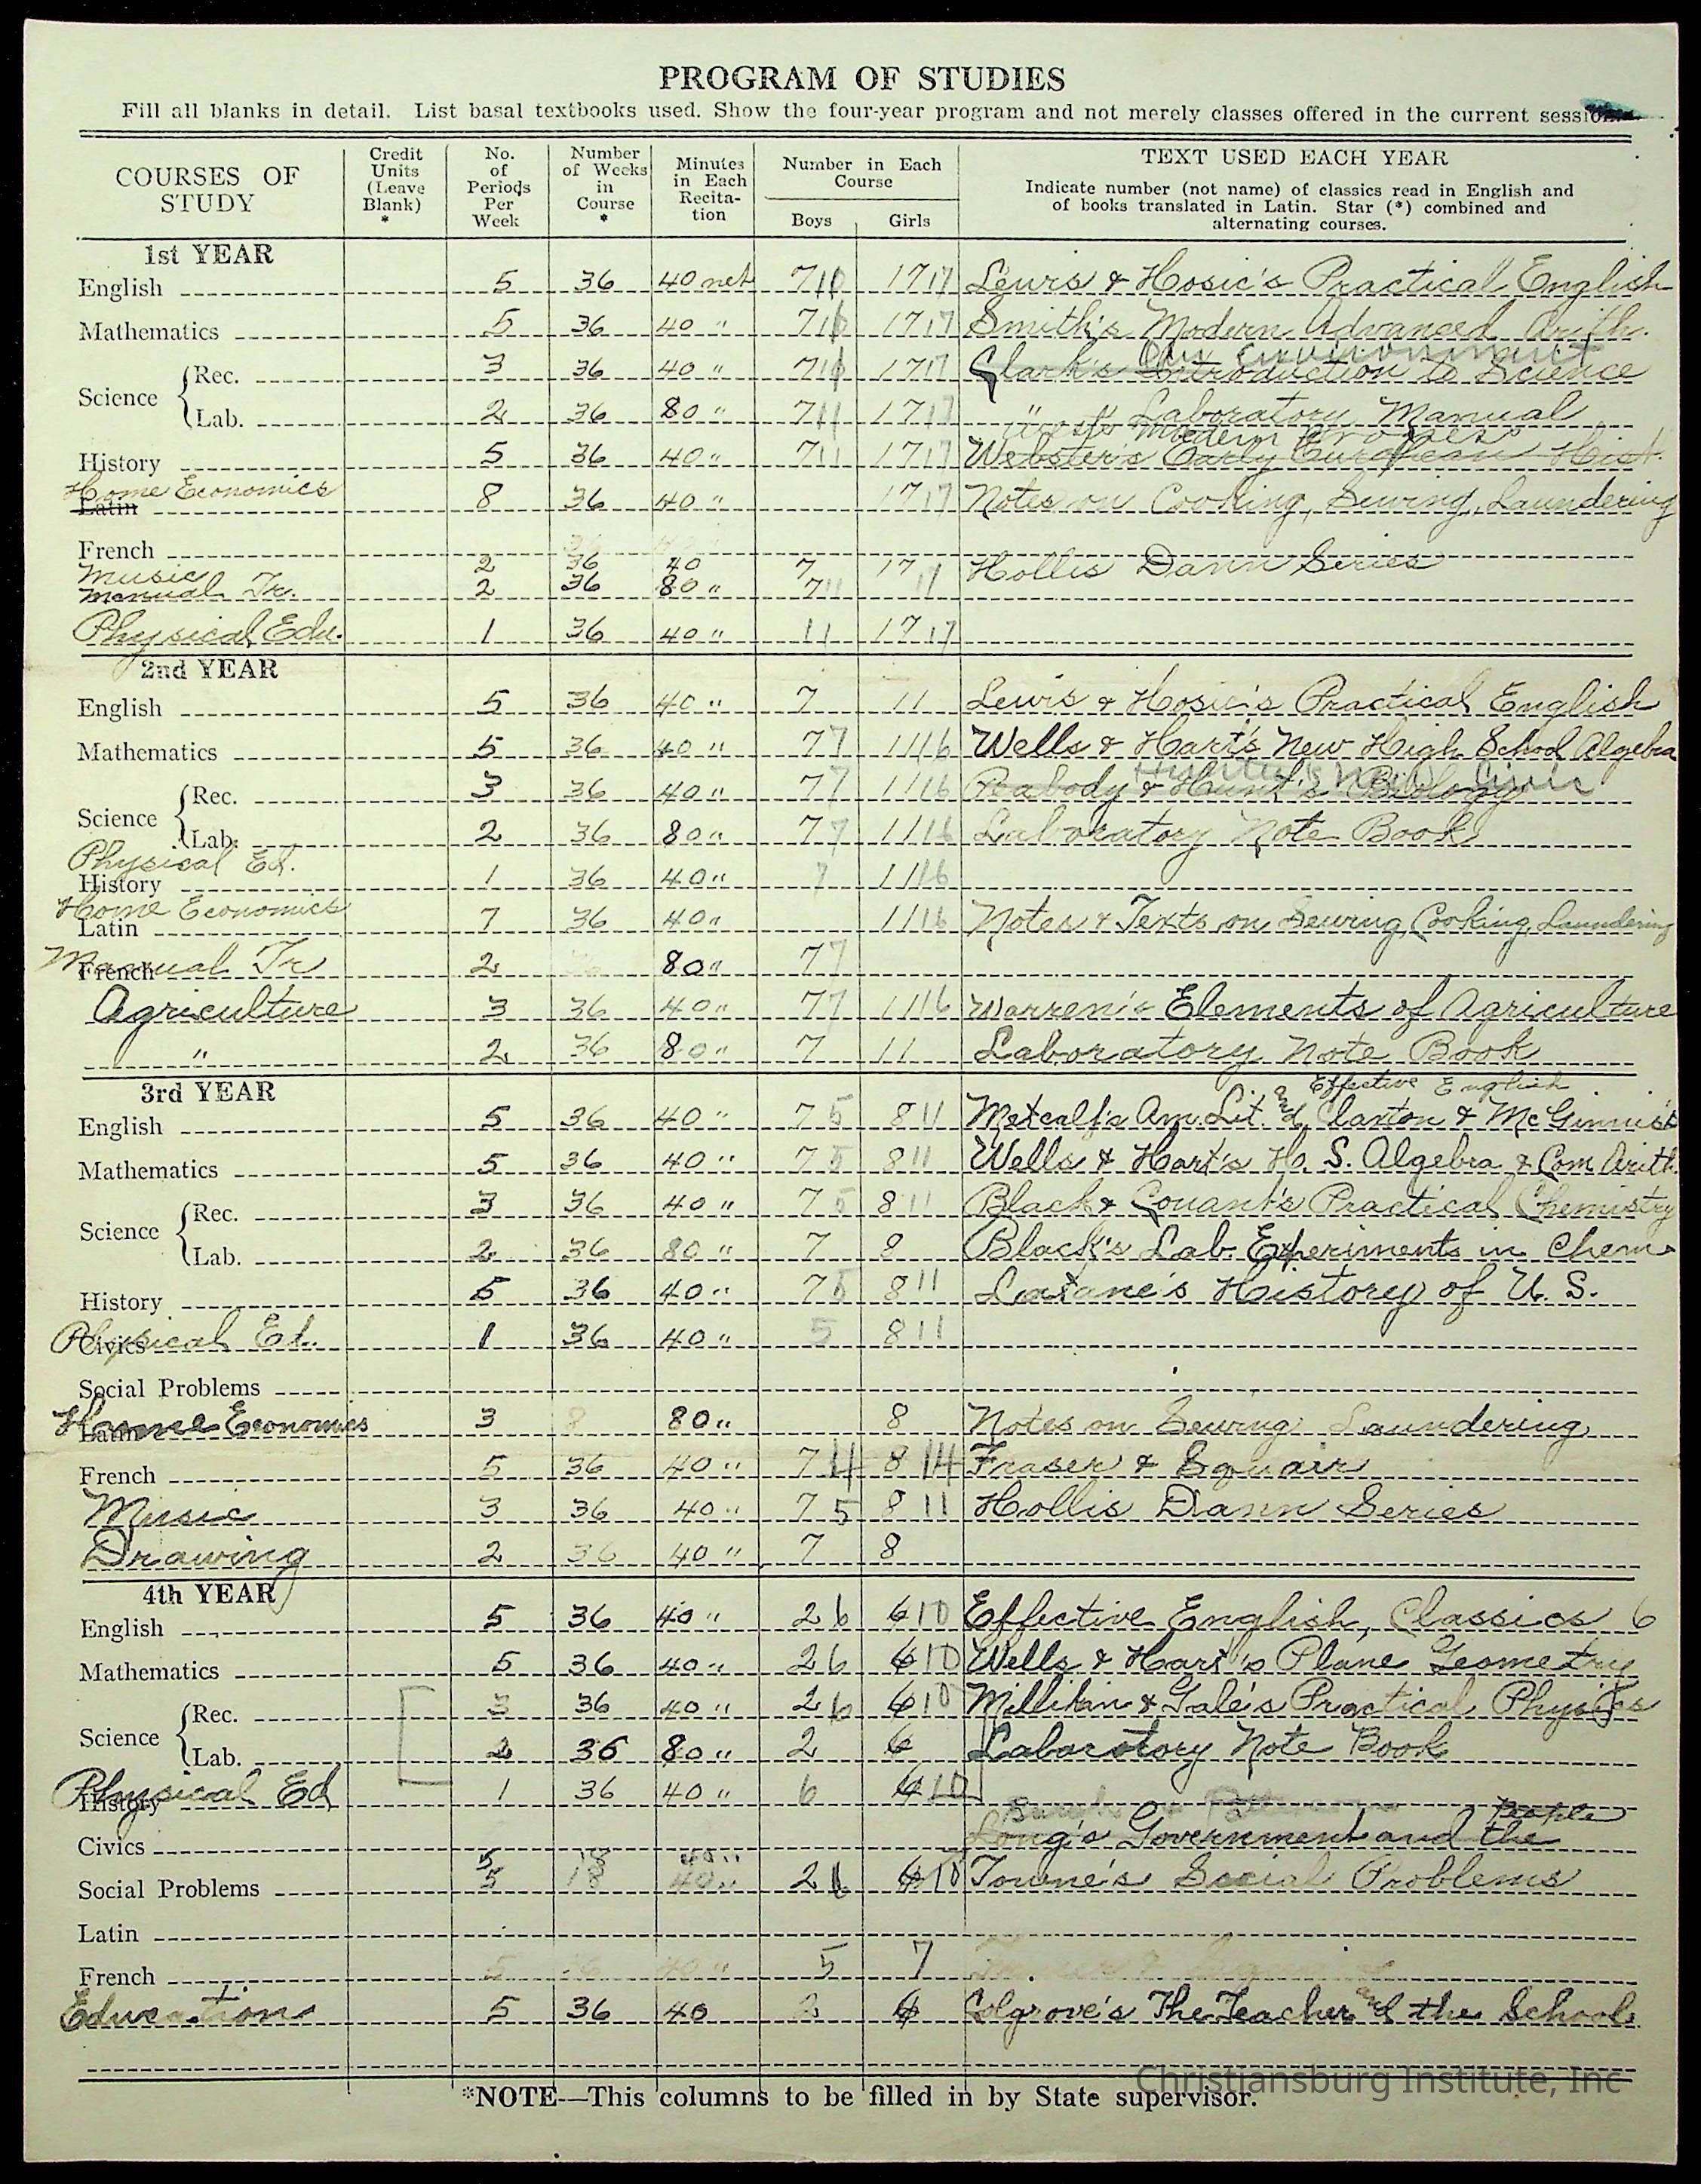 PROGRAM OF STUDIES
Fill all blanks in detail. List basal textbooks used. Show the four-year program and not merely classes offered in the current session.
COURSES OF STUDY Credit Units (Leave Blank) * No. of Periods Per Week Number of Weeks in Course * Minutes in Each Recitation Number in Each Course Boys Girls TEXT USED EACH YEAR
Indicate number (not name) of classics read in English and of books translated in Latin. Star (*) combined and alternating courses.
1st YEAR
English 5 36 40 net 7 17 17 Lewis & Hosic's Practical English
Mathematics 5 36 40 " 7 17 17 Smith's Modern Advanced Arith.
Our Environment
Science Rec. 3 36 40 " 7 17 17 Clark's Introduction to Science
Lab. 2 36 80 " 7 11 17 17 " " Laboratory Manual
Modern
History 5 36 40 " 7 11 17 17 Webster's Early European Hist.
Home Economics
Latin 8 36 40 " 17 17 Notes on Cooking, Sewing, Laundering
French
Music 2 36 40 7 17 Hollis Dann Series
Manual Tr. 2 36 80 " 7 11
Physical Edu. 1 36 40 " 11 17 17
2nd YEAR
English 5 36 40 " 7 11 Lewis & Hosic's Practical English
Mathematics 5 36 40 " 7 7 11 16 Wells & Hart's New High School Algebra
Science Rec. 3 36 40 " 7 7 11 16 Peabody & Hunt's Biology
Lab. 2 36 80 " 7 7 11 16 Laboratory Note Book
Physical Ed.
History 1 36 40 " 7 11 16
Home Economics
Latin 7 36 40 " 11 16 Notes & Texts on Sewing, Cooking, Laundering
Manual Tr
French 2 80 " 7 7
Agriculture 3 36 40 " 7 7 11 16 Warren's Elements of Agriculture
" 2 36 80 " 7 11 Laboratory Note Book
3rd YEAR
Effective English
English 5 36 40 " 7 5 8 11 Metcalf's Am. Lit. and Claxton & McGinnis's
Mathematics 5 36 40 " 7 5 8 11 Wells & Hart's H. S. Algebra & Com. Arith.
Science Rec. 3 36 40 " 7 5 8 11 Black & Conant's Practical Chemistry
Lab. 2 36 80 " 7 8 Black's Lab. Experiments in Chem.
History 5 36 40 " 7 5 8 11 Latane's History of U. S.
Physical Ed.
Civics 1 36 40 " 5 8 11
Social Problems
Home Economics
Latin 3 8 80 " 8 Notes on Sewing Laundering
French 5 36 40 " 7 4 8 14 Fraser & Squair
Music 3 36 40 " 7 5 8 11 Hollis Dann Series
Drawing 2 36 40 " 7 8
4th YEAR
English 5 36 40 " 2 6 6 10 Effective English, Classics 6
Mathematics 5 36 40 " 2 6 6 10 Wells & Hart's Plane Geometry
Science Rec. 3 36 40 " 2 6 6 10 Millikan & Gale's Practical Physics
Lab. 2 36 80 " 2 6 Laboratory Note Book
Physical Ed
History 1 36 40 " 6 6 10
People
Civics Long's Government and the
5 18 40 "
Social Problems 5 18 40 " 2 6 6 10 Towne's Social Problems
Latin
French 5 36 40 " 5 7
Education 5 36 40 2 6 Colgrove's The Teacher and the School
*NOTE—This columns to be filled in by State supervisor.
Christiansburg Institute, Inc